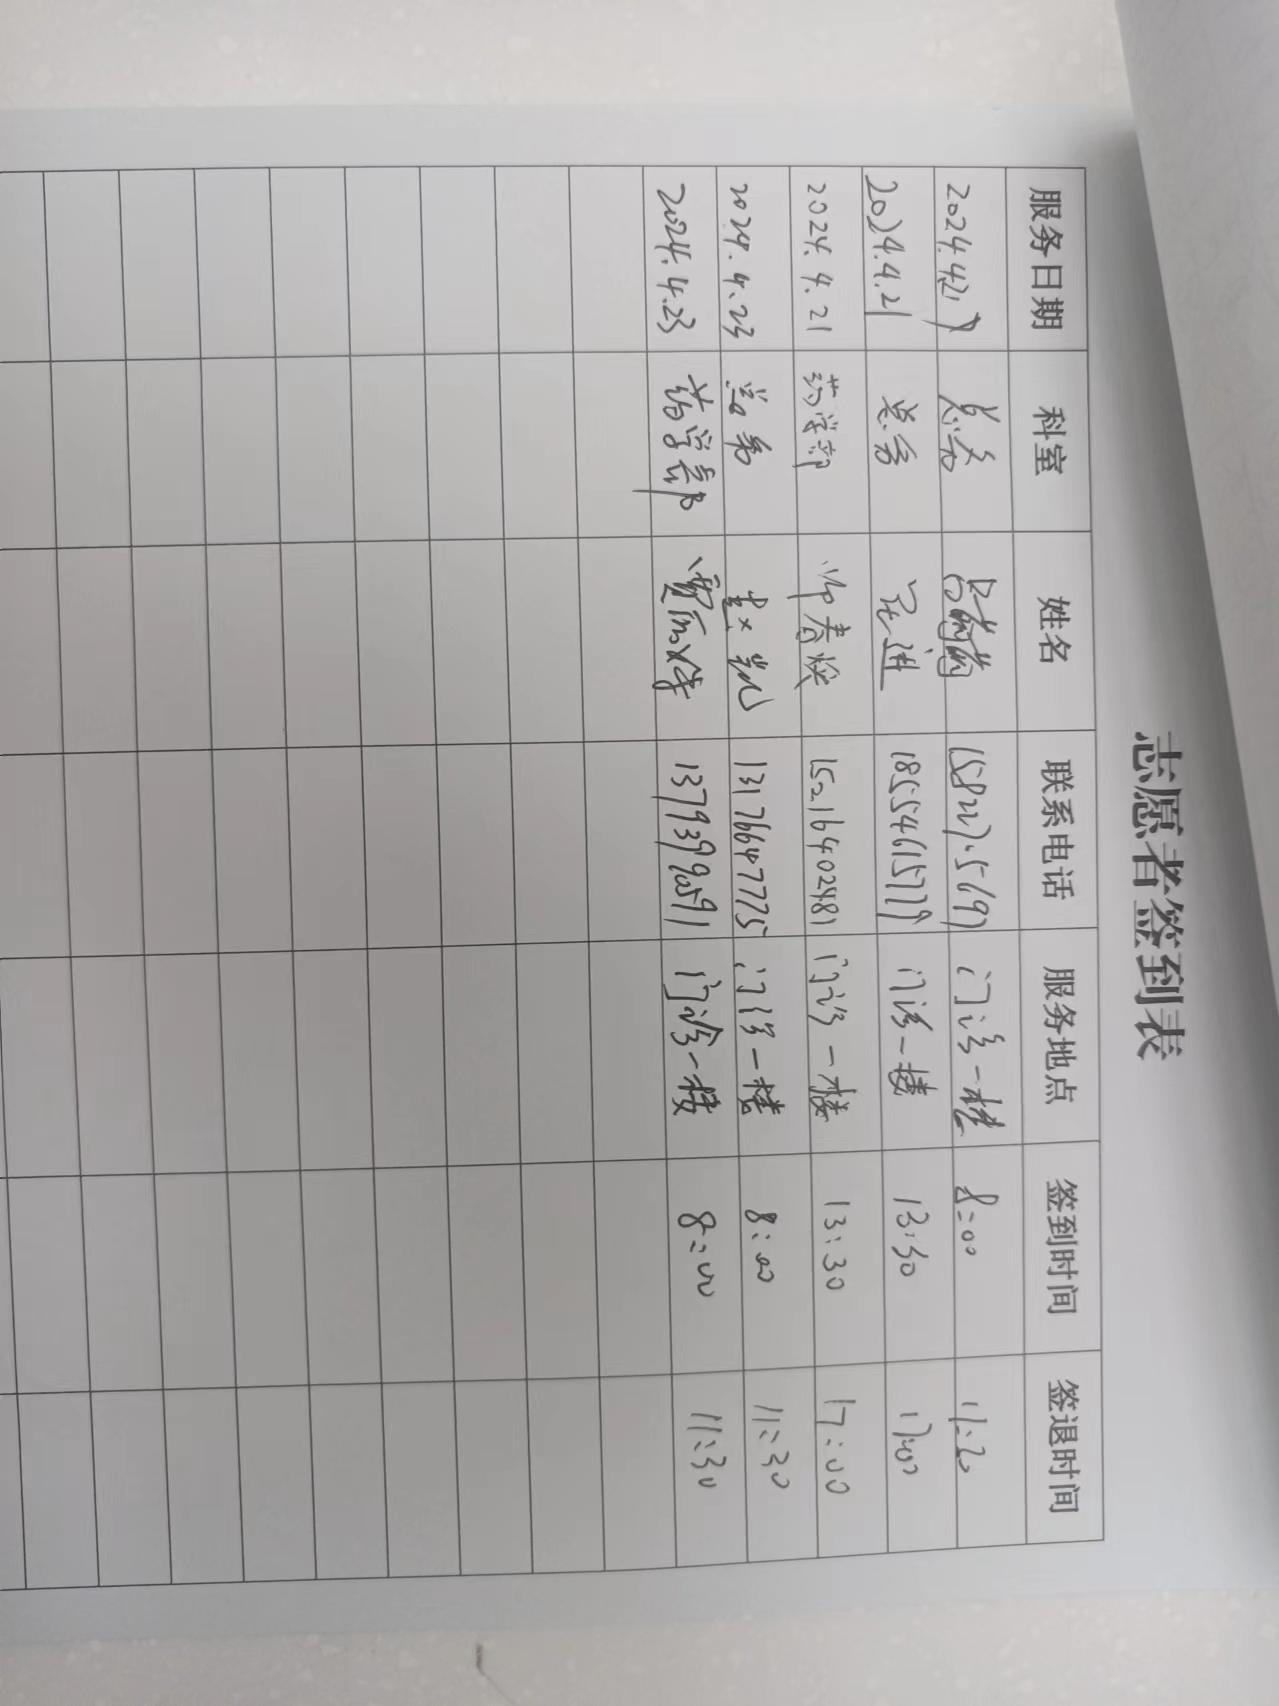 志愿者签到表
服务日期 科室 姓名 联系电话 服务地点 签到时间 签退时间
总务 门诊一楼 8:00
2024.4.21 总务 进 18554615779 门诊一楼 13:30 17:00
2024.4.21 药学部 帅春燕 15216402481 门诊一楼 13:30 17:00
2024.4.23 总务 赵凯 13176647775 门诊一楼 8:00 11:30
2024.4.23 药学部 门诊一楼 8:00 11:30